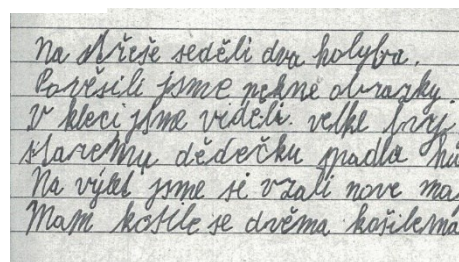 Na střeše seděli dva holyba.
Pověsili jsme pekne obrazky.
V kleci jsme viděli velke
staremu dědečku spadla hů
Na výlet jsme si vzali nove ma
Mam košile se dvěma košilema